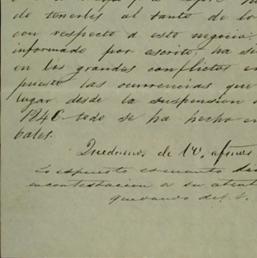 de tenerles al tanto de lo
con respecto a este negocio
informado por escrito, ha se
en los grandes conflictos en
puesto las ocurrencias que
lugar desde la suspension
1940 todo se ha hecho en
bales.
Quedamos de VV. afmos
Lo expuesto es cuanto
en contestacion a su atent
quedando de S.